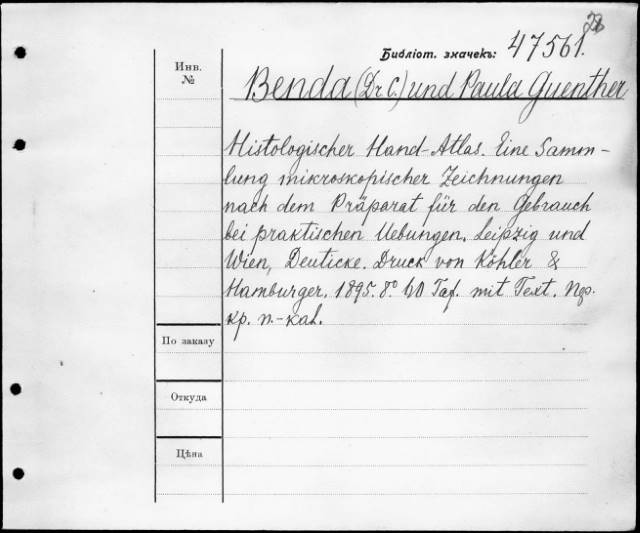 Библіот. значекъ: 47561.
Инв. №
Benda (Dr C.) und Paula Guenther
Histologischer Hand-Atlas. Eine Samm-
lung mikroskopischer Zeichnungen
nach dem Präparat für den Gebrauch
bei praktischen Uebungen. Leipzig und
Wien, Deuticke. Druck von Köhler &
Hamburger. 1895. 8° 60 Taf. mit Text.
кр. п.-
По заказу
Откуда
Цѣна